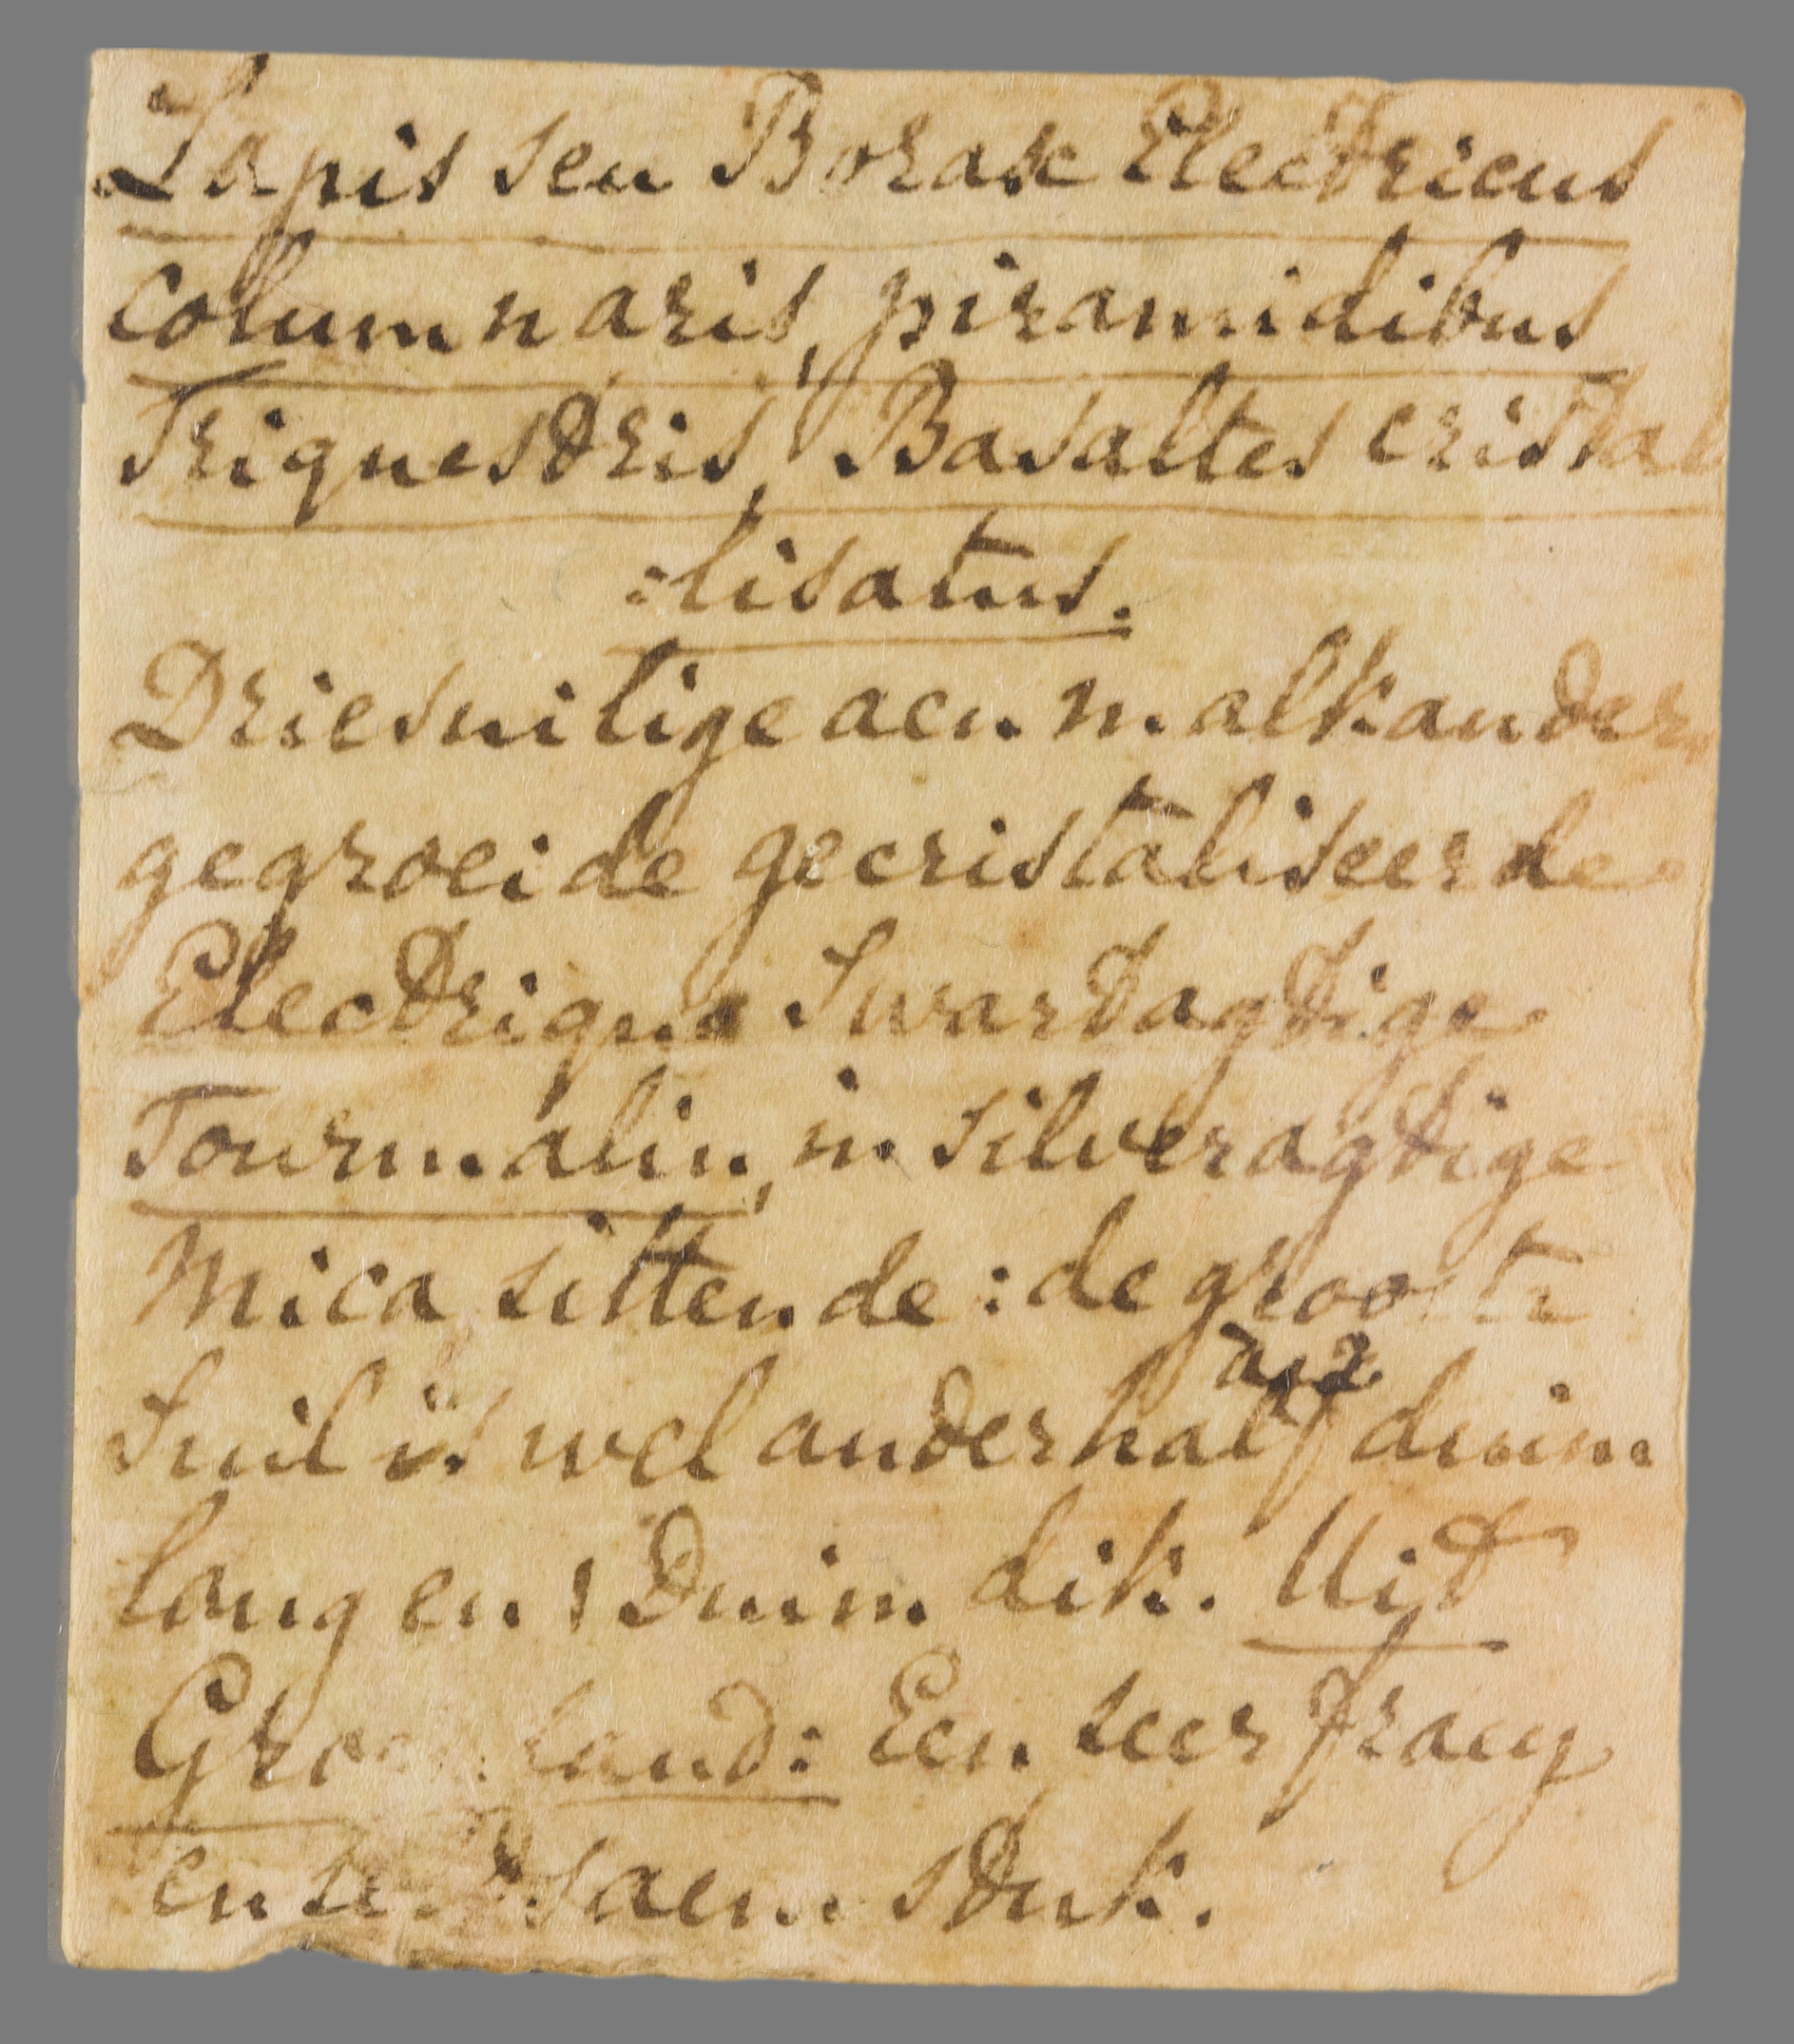 Lapis seu Borax Electricus
columnaris, piramidibus
Triquestris, Basaltes cristal
:lisatus.
Driesuilige aen malkander
gegroeide gecristaliseerde
Electrique Swartagtige
Tourmalin, in silveragtige
Mica sittende: de grootste
Suil is wel anderhalf duim
lang en 1 Duim dik. Uit
Groenland: Een seer fraey
en seldsaem stuk.